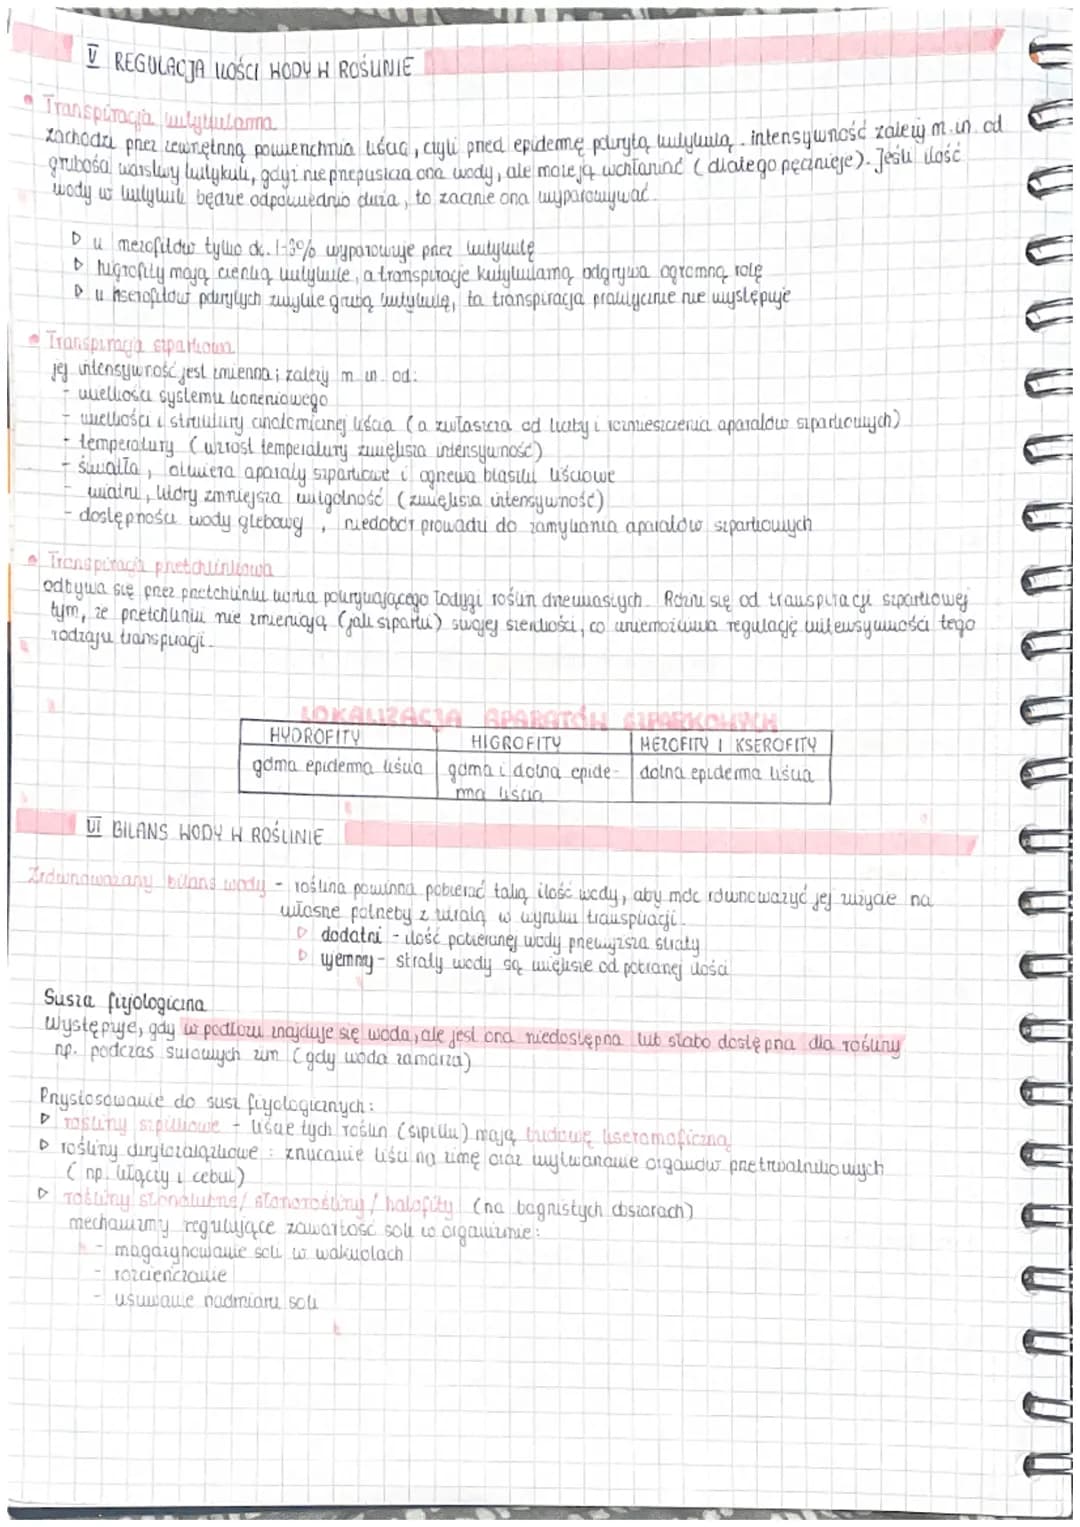 V REGULACJA ILOŚCI WODY W ROŚLINIE
• Transpiracja kutykularna
zachodzi przez zewnętrzną powierzchnię liścia, czyli przed epidermę pokrytą kutykulą. intensywność zależy m.in. od
grubości warstwy kutykuli, gdyż nie przepuszcza ona wody, ale może ją wchłaniać (dlatego pęcznieje). Jeśli ilość
wody w kutykuli będzie odpowiednio duża, to zacznie ona wyparowywać.
▷ u mezofitów tylko ok. 1-3% wyparowuje przez kutykulę
▷ higrofity mają cienką kutykule, a transpiracje kutykularną odgrywa ogromną rolę
▷ u kserofitów pokrytych zwykle grubą kutykulą, ta transpiracja praktycznie nie występuje
• Transpiracja szparkowa
jej intensywność jest zmienna i zależy m.in. od:
- wielkości systemu korzeniowego
- wielkości i struktury anatomicznej liścia (a zwłaszcza od liczby i rozmieszczenia aparatów szparkowych)
- temperatury (wzrost temperatury zwiększa intensywność)
- światła, otwiera aparaty szparkowe i ogrzewa blaszki liściowe
- wiatru, który zmniejsza wilgotność (zwiększa intensywność)
- dostępności wody glebowej, niedobór prowadzi do zamykania aparatów szparkowych
• Transpiracja przetchlinkowa
odbywa się przez przetchlinki korka pokrywającego łodygi roślin drzewiastych. Różni się od transpiracji szparkowej
tym, że przetchlinki nie zmieniają (jak szparki) swojej szerokości, co uniemożliwia regulację intensywności tego
rodzaju transpiracji.
LOKALIZACJA APARATÓW SZPARKOWYCH
HYDROFITY HIGROFITY MEZOFITY I KSEROFITY
górna epiderma liścia górna i dolna epide- dolna epiderma liścia
rma liścia
VI BILANS WODY W ROŚLINIE
Zrównoważony bilans wody - roślina powinna pobierać taką ilość wody, aby móc równoważyć jej zużycie na
własne potrzeby z utratą w wyniku transpiracji.
▷ dodatni - ilość pobieranej wody przewyższa straty
▷ ujemny - straty wody są większe od pobranej ilości
Susza fizjologiczna
Występuje, gdy w podłożu znajduje się woda, ale jest ona niedostępna lub słabo dostępna dla rośliny
np. podczas surowych zim (gdy woda zamarza)
Przystosowanie do susz fizjologicznych:
▷ rośliny szpilkowe - liście tych roślin (szpilki) mają budowę kseromoficzną
▷ rośliny okrytozalążkowe: zrzucanie liści na zimę oraz wytwarzanie organów przetrwalnikowych
(np. kłączy i cebul)
▷ rośliny słonolubne/ słonorośliny / halofity (na bagnistych obszarach)
mechanizmy regulujące zawartość soli w organizmie:
- magazynowanie soli w wakuolach
- rozcieńczanie
- usuwanie nadmiaru soli